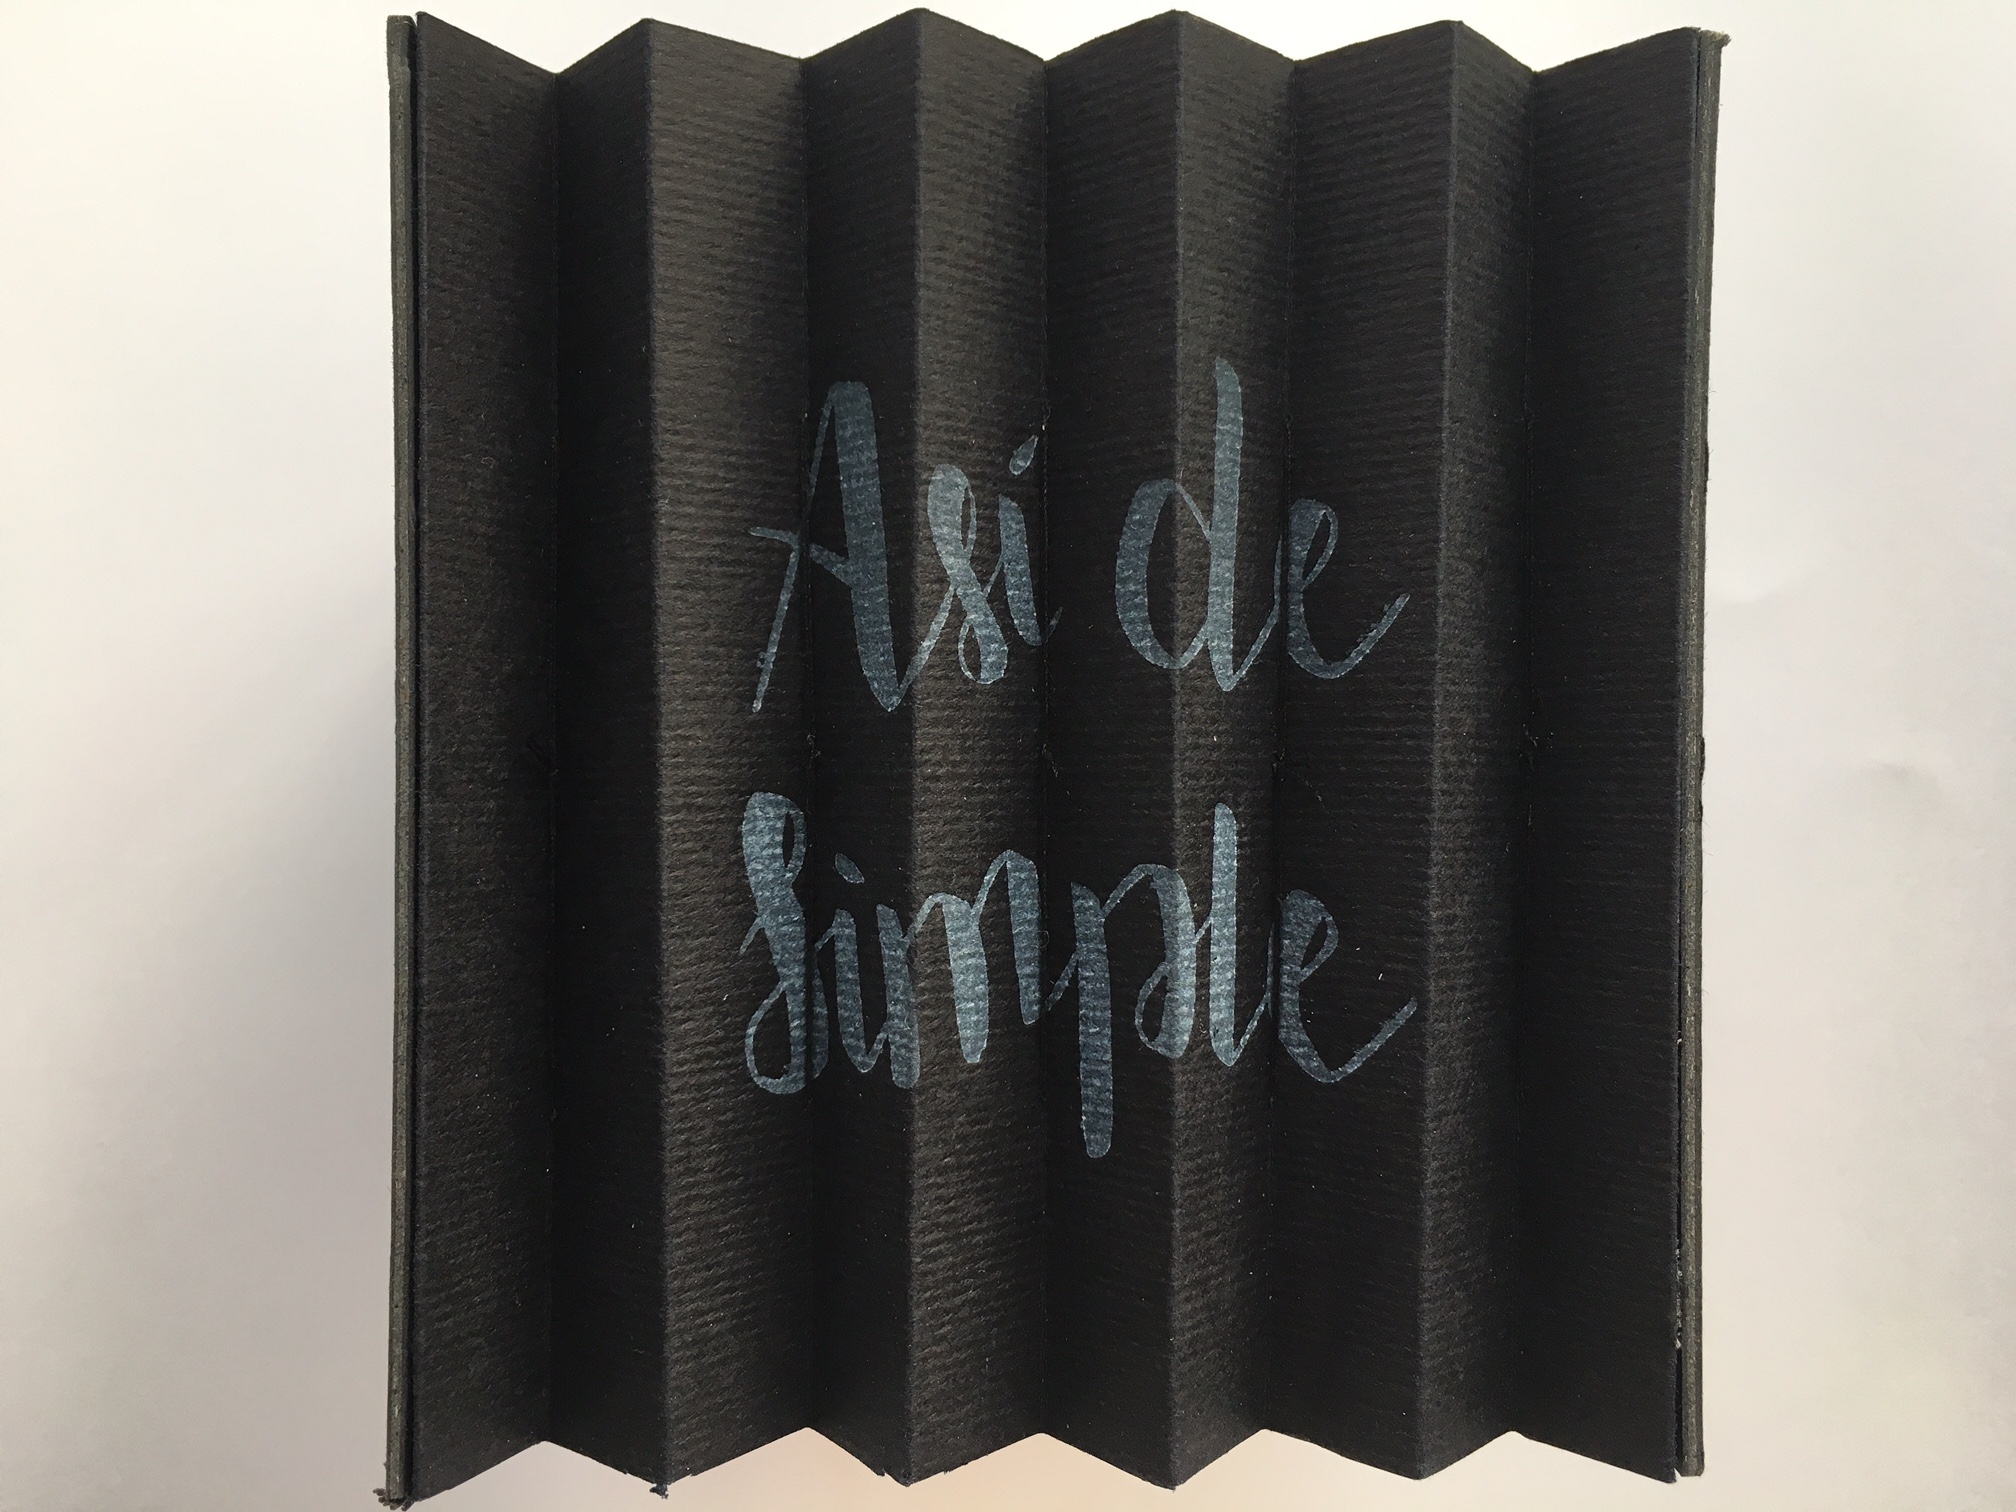 Asi de
Simple